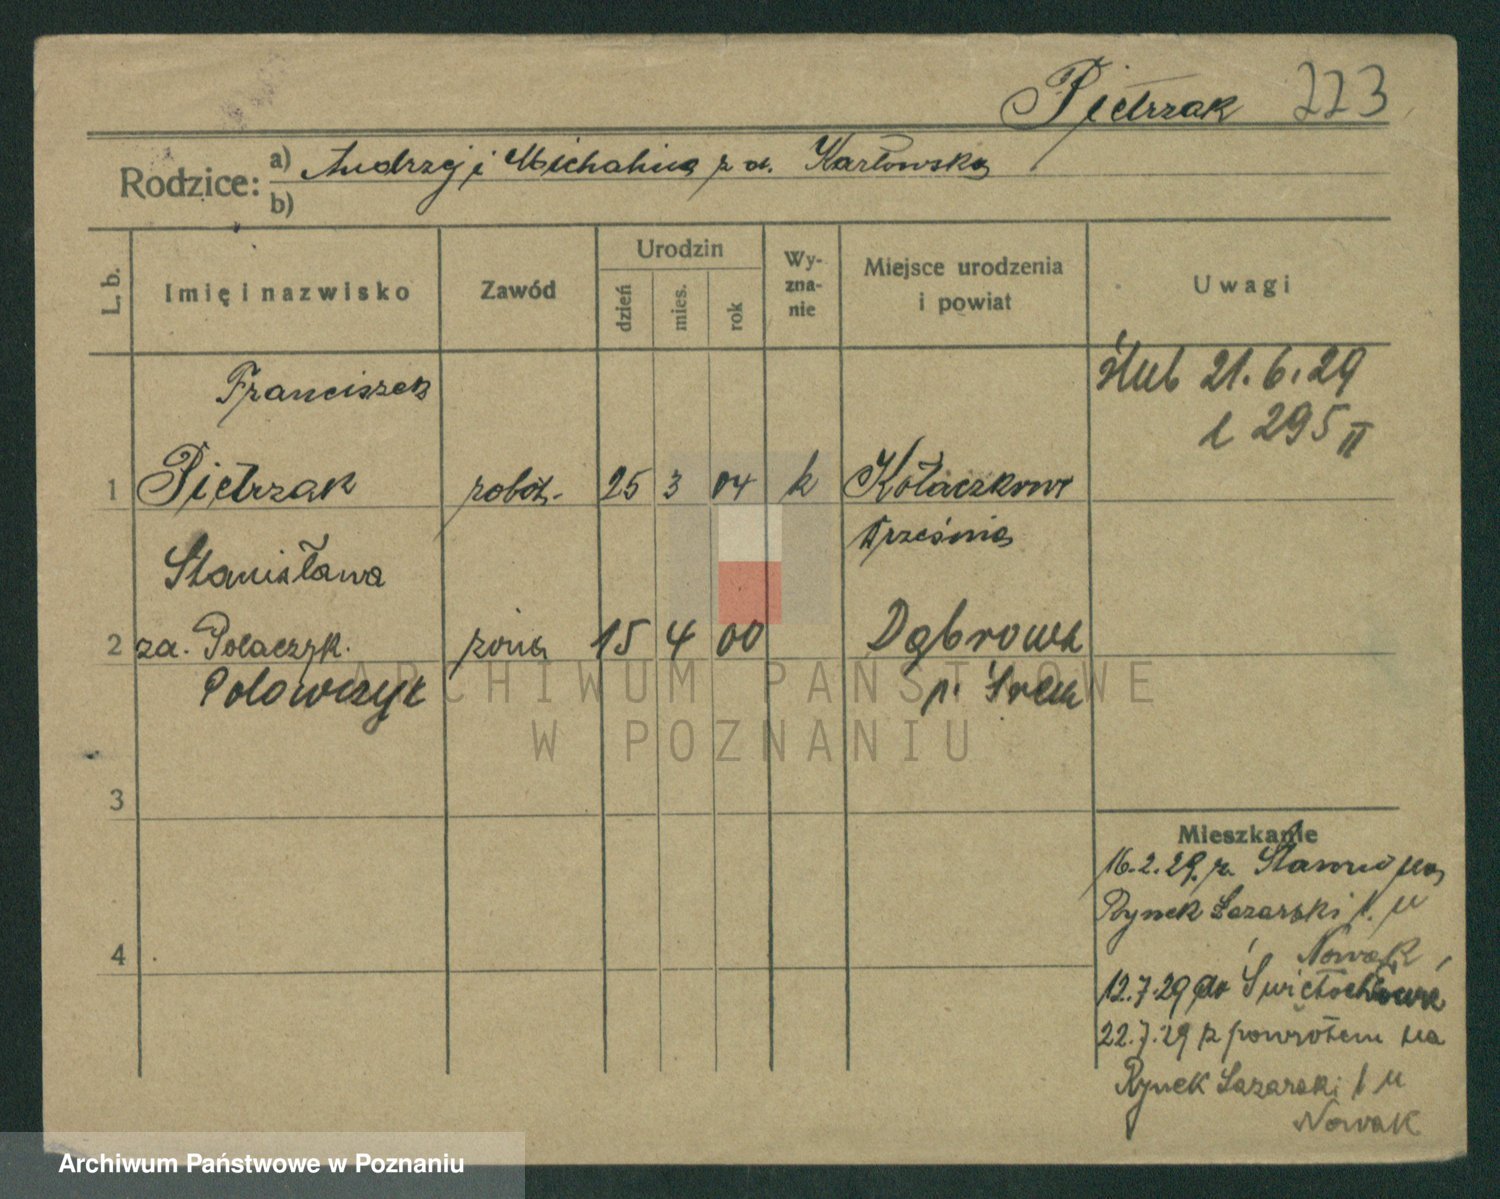 Pietrzak 223
Rodzice: a) Andrzej i Michalina z d. Karłowska
b)
L. b.
Imię i nazwisko
Zawód
Urodzin
dzień
mies.
rok
Wy-
zna-
nie
Miejsce urodzenia
i powiat
Uwagi
Franciszek
ślub 21.6.29
l 295 II
1 Pietrzak robot. 25 3 04 k Kołaczkowo
Września
Stanisława
2 za. Polaczyk. żona 15 4 00 Dąbrowa
Polowczyk p. Śrem
3
4
Mieszkanie
16.2.29. z na
Rynek Łazarski 1. u
Nowak
12.7.29 do Świętochłowic
22.7.29 z powrotem na
Rynek Łazarski 1 u
Nowak
ARCHIWUM PAŃSTWOWE
W POZNANIU
Archiwum Państwowe w Poznaniu